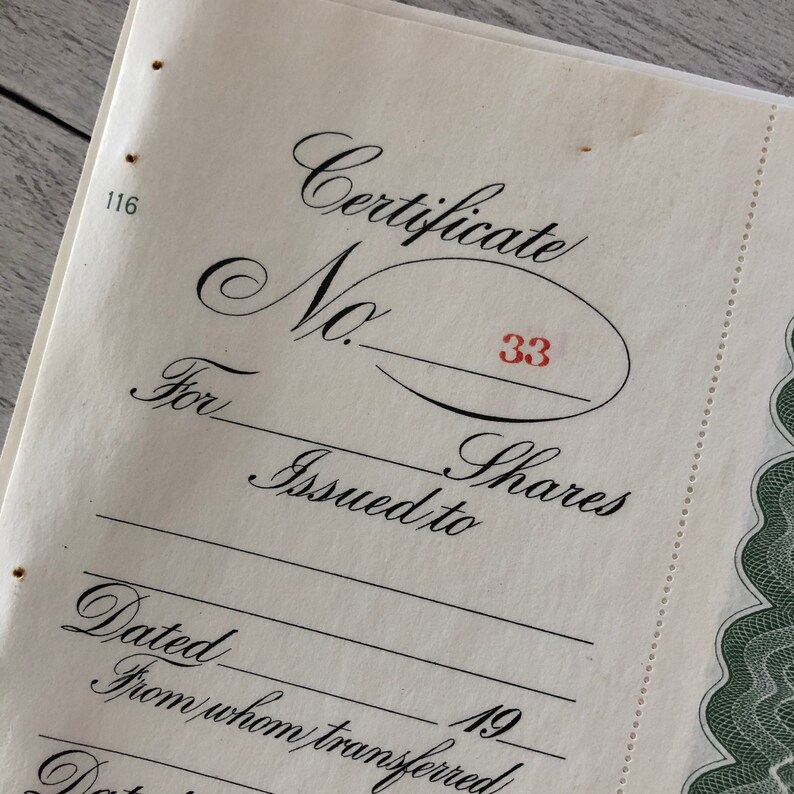 116
Certificate
No. 33
For Shares
Issued to
Dated 19
From whom transferred